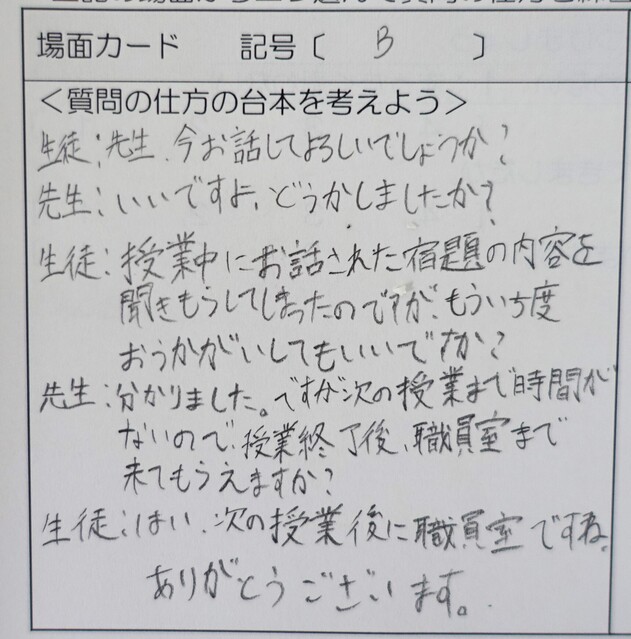 場面カード 記号〔 B 〕
＜質問の仕方の台本を考えよう＞
生徒:先生、今お話してよろしいでしょうか?
先生:いいですよ、どうかしましたか?
生徒:授業中にお話された宿題の内容を
聞きもらしてしまったのですが、もういち度
おうかがいしてもいいですか?
先生:分かりました。ですが次の授業まで時間が
ないので、授業終了後、職員室まで
来てもらえますか?
生徒:はい、次の授業後に職員室ですね。
ありがとうございます。